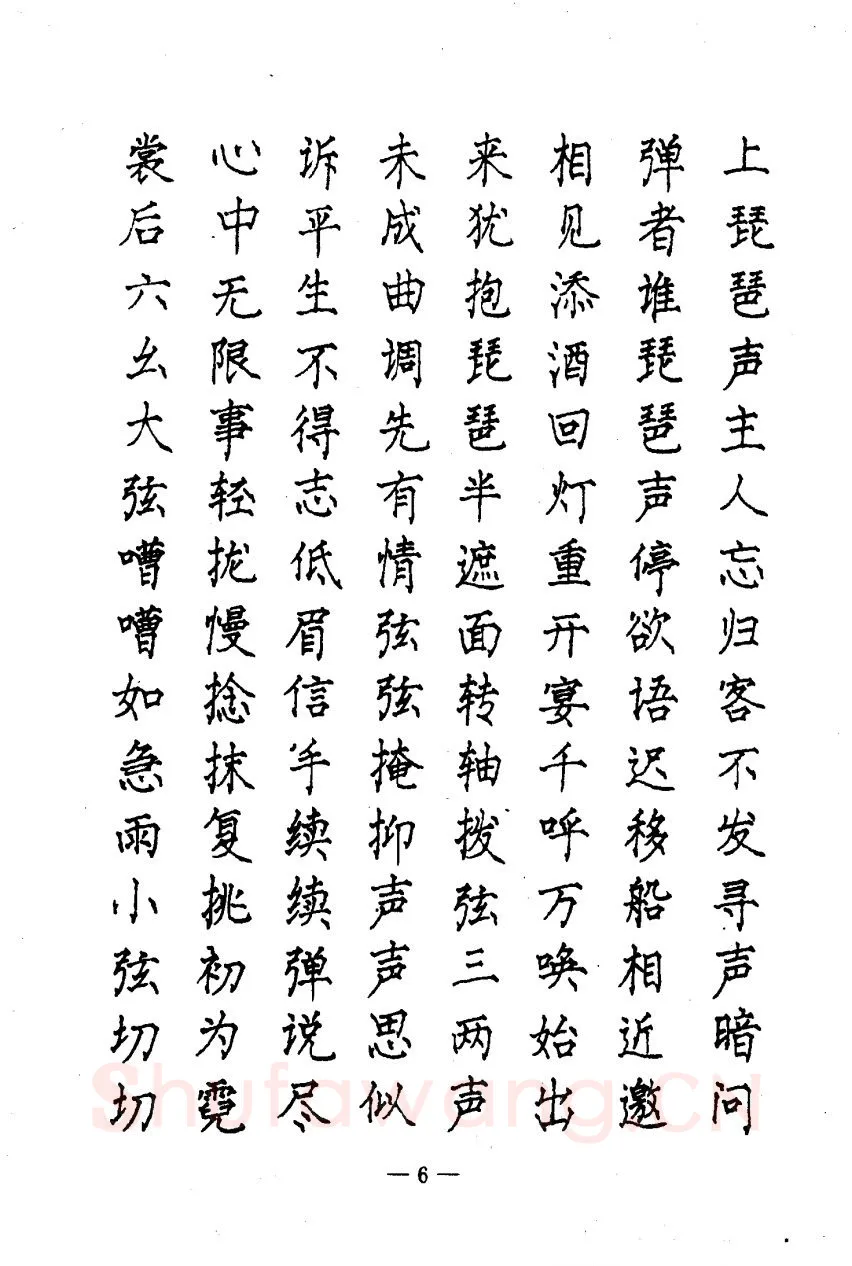 上琵琶声主人忘归客不发寻声暗问
弹者谁琵琶声停欲语迟移船相近邀
相见添酒回灯重开宴千呼万唤始出
来犹抱琵琶半遮面转轴拨弦三两声
未成曲调先有情弦弦掩抑声声思似
诉平生不得志低眉信手续续弹说尽
心中无限事轻拢慢捻抹复挑初为霓
裳后六幺大弦嘈嘈如急雨小弦切切
Shufawang.CN
— 6 —